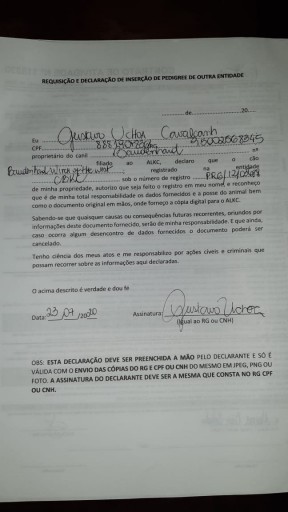 REQUISIÇÃO E DECLARAÇÃO DE INSERÇÃO DE PEDIGREE DE OUTRA ENTIDADE
de 20
Eu Gustavo Uchoa Cavalcanti
CPF
proprietário do canil nº
filiado ao ALKC, declaro que o cão
registrado na entidade
CBKC sob o número de registro
de minha propriedade, autorizo que seja feito o registro em meu nome, e reconheço
que é de minha total responsabilidade os dados fornecidos e a posse do animal bem
como o documento original em mãos, onde forneço a cópia digital para o ALKC.
Sabendo-se que quaisquer causas ou consequências futuras recorrentes, oriundos por
informações deste documento fornecido, serão de minha responsabilidade. E que ainda,
caso ocorra algum desencontro de dados fornecidos o documento poderá ser
cancelado.
Tenho ciência dos meus atos e me responsabilizo por ações cíveis e criminais que
possam recorrer sobre as informações aqui declaradas.
O acima descrito é verdade e dou fé
Data: Assinatura: Gustavo Uchoa
(Igual ao RG ou CNH)
OBS: ESTA DECLARAÇÃO DEVE SER PREENCHIDA A MÃO PELO DECLARANTE E SÓ É
VÁLIDA COM O ENVIO DAS CÓPIAS DO RG E CPF OU CNH DO MESMO EM JPEG, PNG OU
FOTO. A ASSINATURA DO DECLARANTE DEVE SER A MESMA QUE CONSTA NO RG CPF
OU CNH.